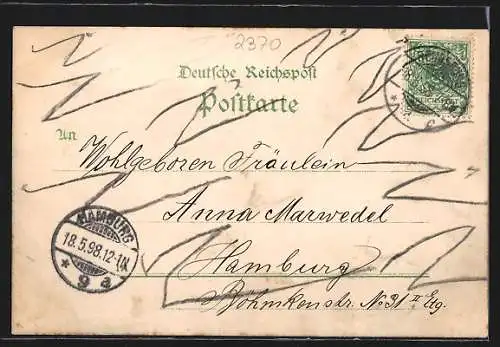 2370
Deutsche Reichspost
Postkarte
An
Wohlgeboren Fräulein
Anna Marwedel
Hamburg
Böhmkenstr. No 31 II Etg.
HAMBURG
18.5.98.12-1N
* 9 a